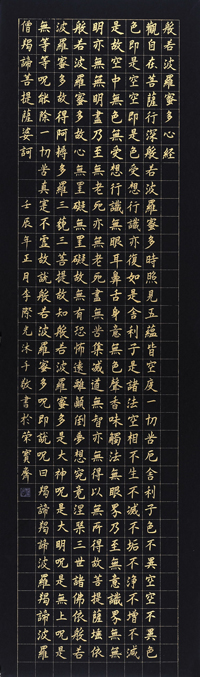 般若波羅蜜多心經
觀自在菩薩行深般若波羅蜜多時照見五蘊皆空度一切苦厄舍利子色不異空空不異色
色即是空空即是色受想行識亦復如是舍利子是諸法空相不生不滅不垢不淨不增不減
是故空中無色無受想行識無眼耳鼻舌身意無色聲香味觸法無眼界乃至無意識界無無
明亦無無明盡乃至無老死亦無老死盡無苦集滅道無智亦無得以無所得故菩提薩埵依
般若波羅蜜多故心無罣礙無罣礙故無有恐怖遠離顛倒夢想究竟涅槃三世諸佛依般若
波羅蜜多故得阿耨多羅三藐三菩提故知般若波羅蜜多是大神呪是大明呪是無上呪是
無等等呪能除一切苦真實不虛故說般若波羅蜜多呪即說呪曰羯諦羯諦波羅羯諦波羅
僧羯諦菩提薩婆訶 壬辰年正月李際光沐手敬書於榮寶齋